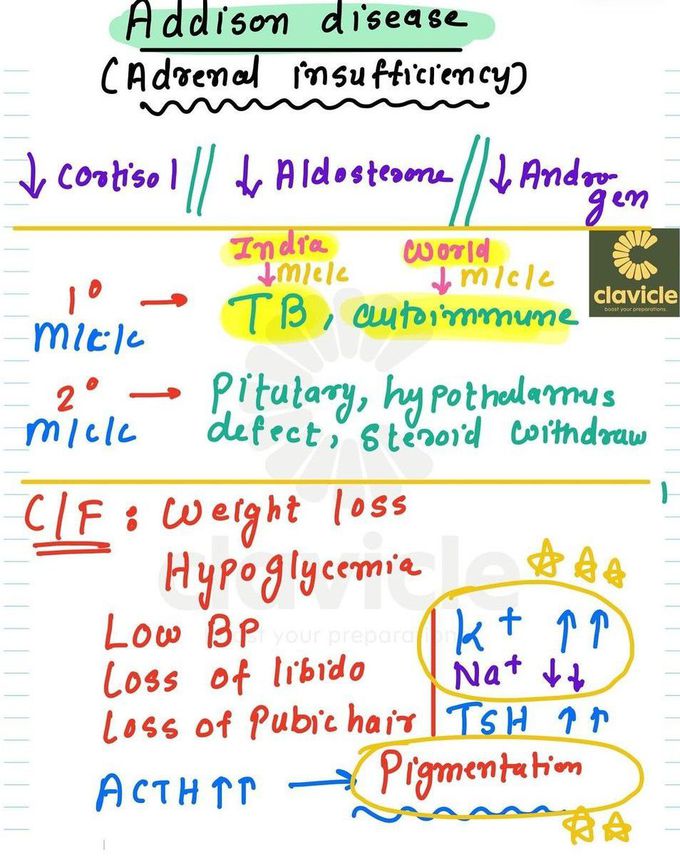 Addison disease
(Adrenal insufficiency)
↓ Cortisol // ↓ Aldosterone // ↓ Andro-
gen
India World
↓ m/c/c ↓ m/c/c
1° → TB, autoimmune
M/C/C
2° → Pitutary, hypothalamus
M/C/C defect, Steroid withdraw
clavicle
boost your preparations
C/F : Weight loss
Hypoglycemia
Low BP K+ ↑↑
Loss of libido Na+ ↓↓
Loss of Pubic hair TSH ↑↑
ACTH ↑↑ → Pigmentation
clavicle
boost your preparations